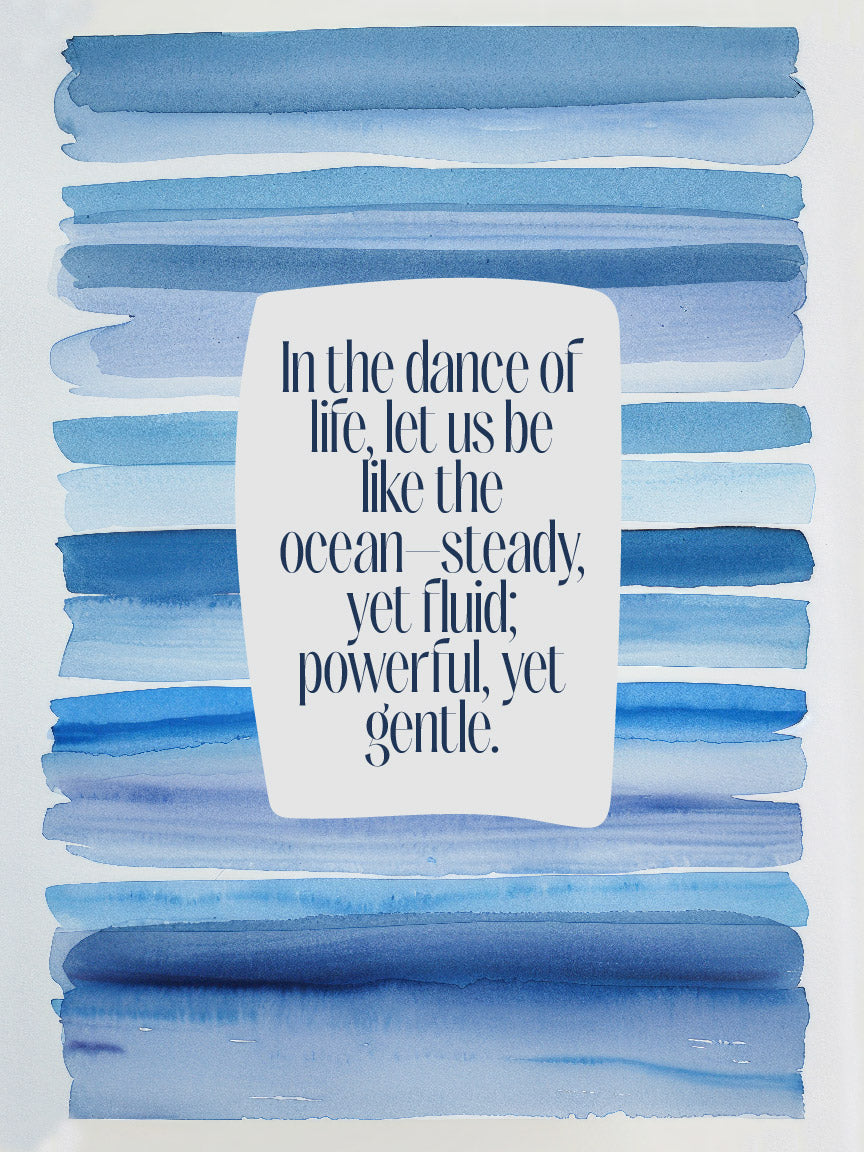 In the dance of
life, let us be
like the
ocean—steady,
yet fluid;
powerful, yet
gentle.